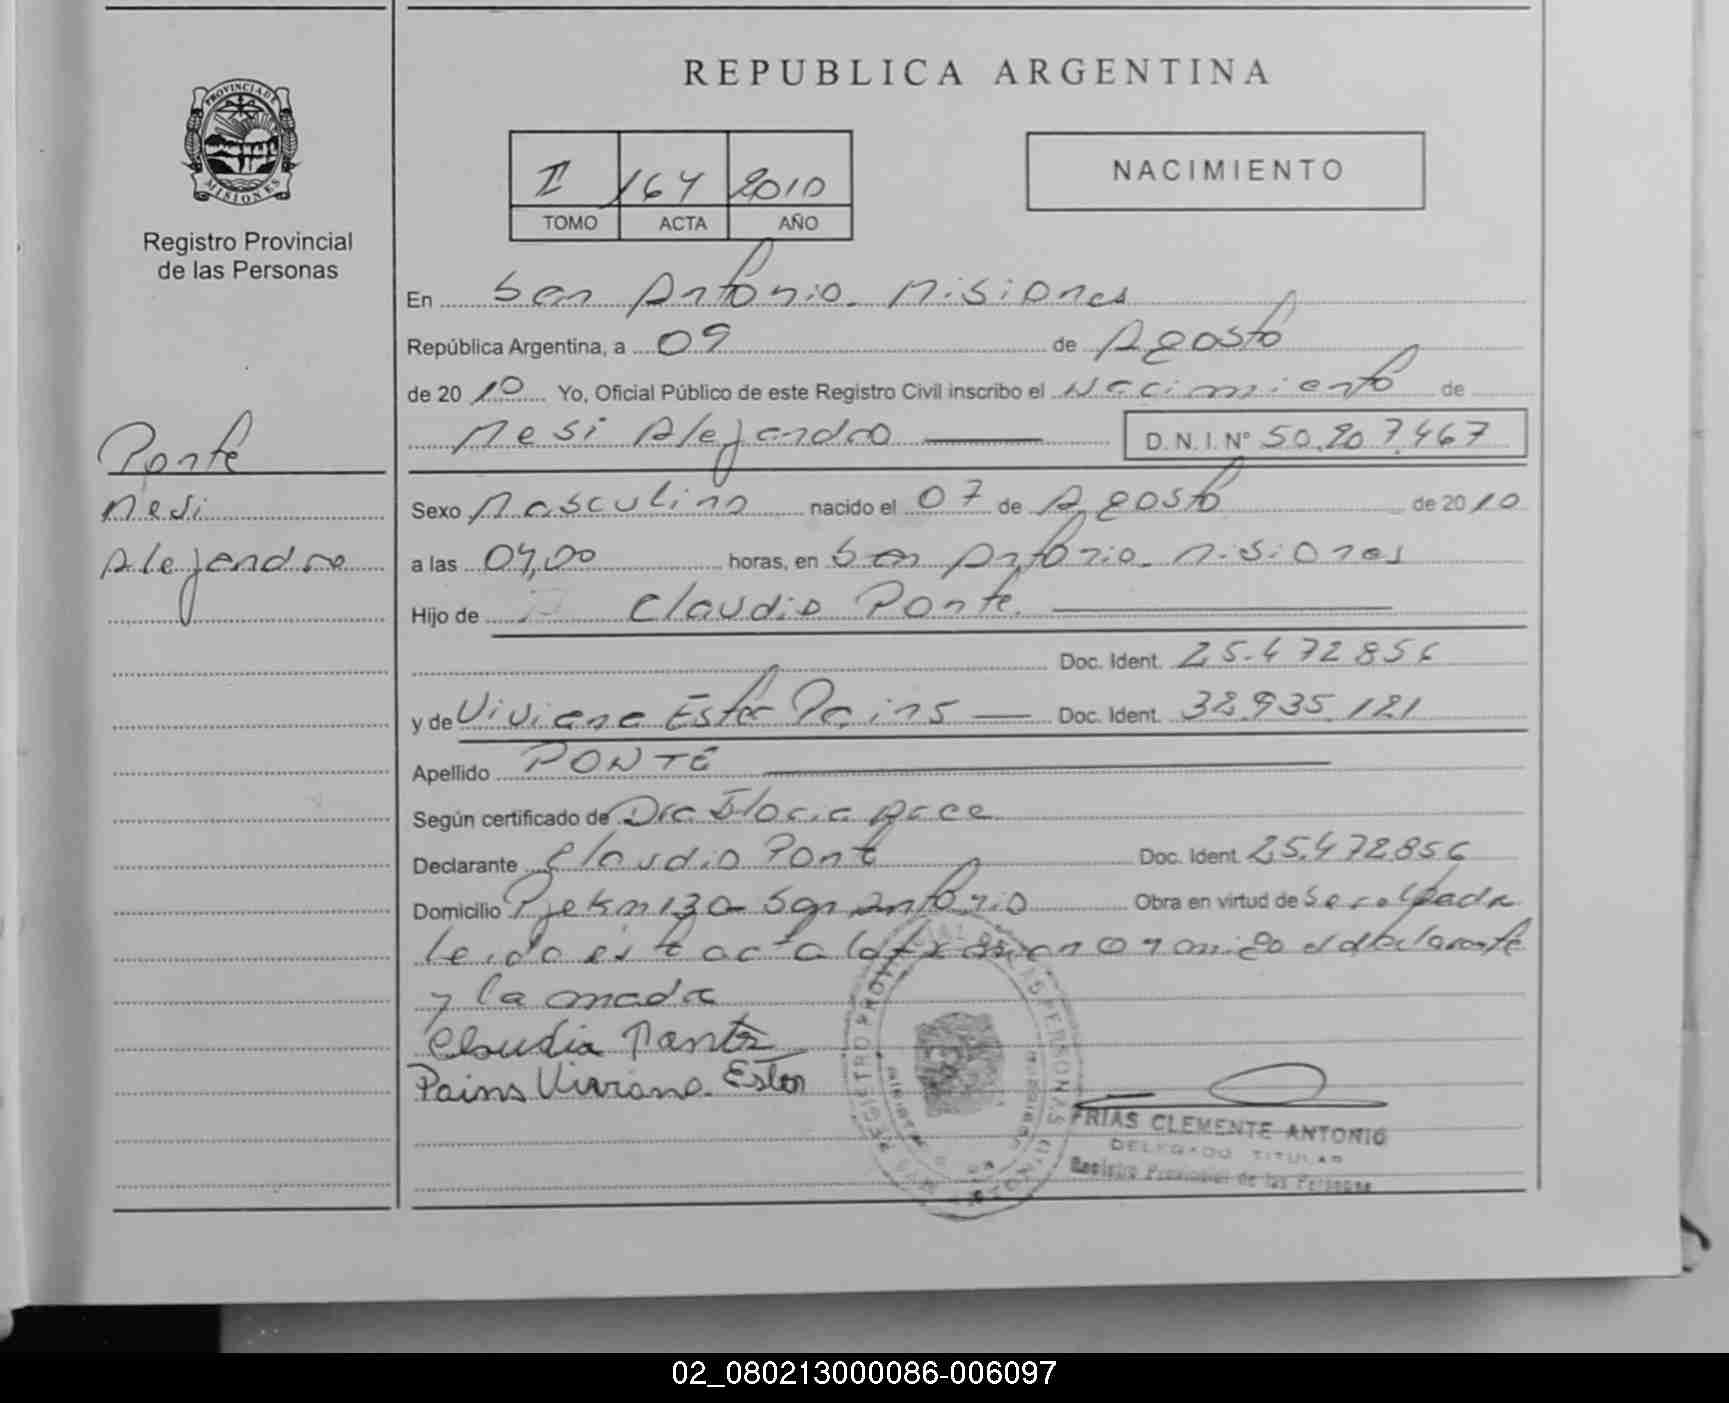 REPUBLICA ARGENTINA
PROVINCIA DE
MISIONES
Registro Provincial
de las Personas
I 164 2010
TOMO ACTA AÑO
NACIMIENTO
En San Antonio. Misiones
República Argentina, a 09 de Agosto
de 20 10 Yo, Oficial Público de este Registro Civil inscribo el Nacimiento de
Mesi Alejandro D.N.I.Nº 50.207.467
Ponte
Mesi
Alejandro
Sexo Masculino nacido el 07 de Agosto de 20 10
a las 04,00 horas, en San Antonio. Misiones
Hijo de Claudio Ponte.
Doc. Ident. 25.472856
y de Viviana Ester Pains Doc. Ident. 38.935.121
Apellido PONTE
Según certificado de Dra
Declarante Claudio Ponte Doc. Ident. 25.472856
Domicilio Pje Km 130 San Antonio Obra en virtud de
Leida esta acta la firman conmigo el declarante
y la madre
Claudio Ponte
Pains Viviana Ester
FRIAS CLEMENTE ANTONIO
DELEGADO TITULAR
Registro Provincial de las Personas
02_080213000086-006097